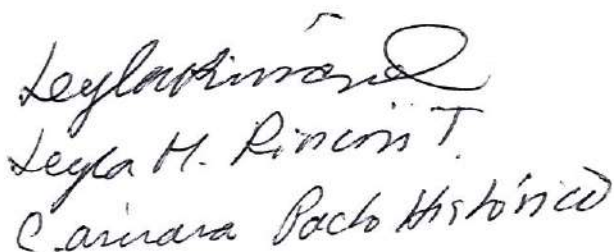 Leyla Rincón
Leyla M. Rincón T.
Cámara Pacto Histórico